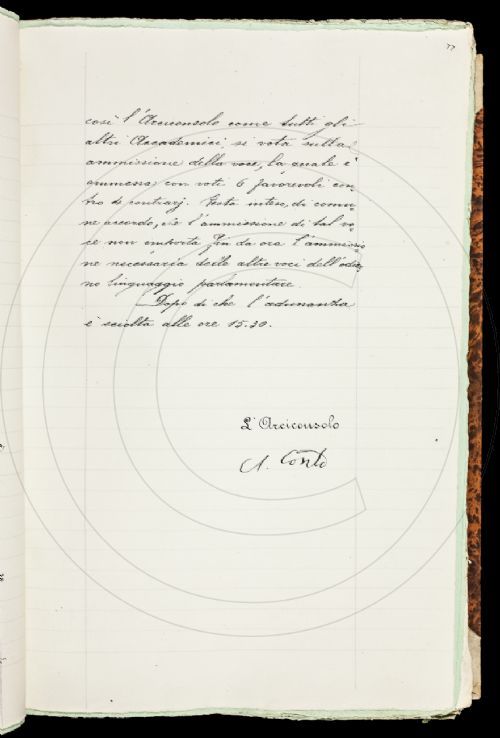 77
così l'Arciconsolo come tutti gli
altri Accademici, si vota sulla
ammissione della voce, la quale è
ammessa con voti 6 favorevoli con-
tro di contrarj. Resta inteso, di comu-
ne accordo, che l'ammissione di tal vo-
ce non importa fin da ora l'ammissio-
ne necessaria delle altre voci dell'odier-
no linguaggio parlamentare.
Dopo di che l'adunanza
è sciolta alle ore 15.30.
L'Arciconsolo
A. Conti